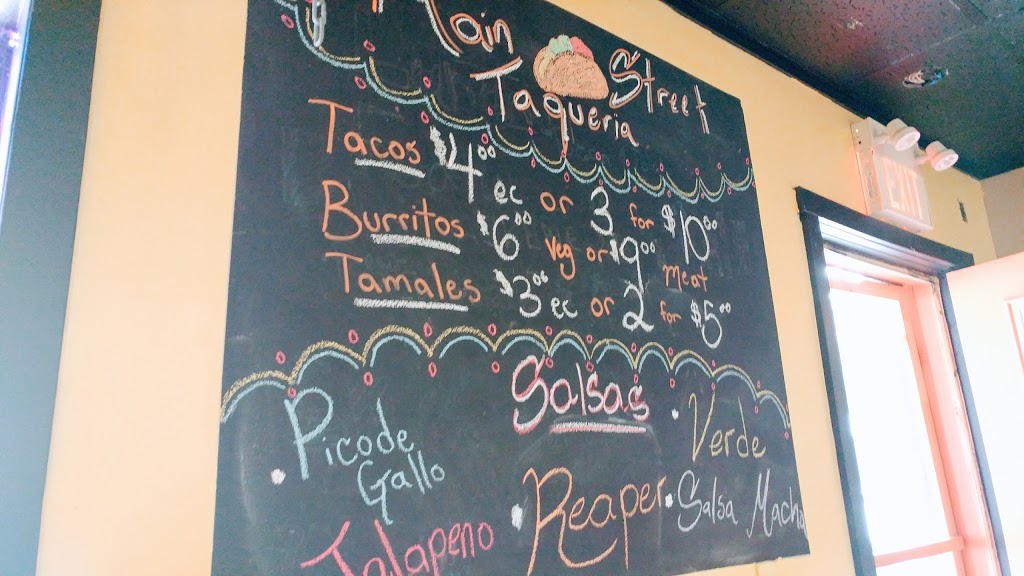 Main Street
Taqueria
Tacos $4.00 ec or 3 for $10.00
Burritos $6.00 veg or $9.00 meat
Tamales $3.00 ec or 2 for $5.00
Salsas
• Pico de Gallo
• Verde
Jalapeno
• Reaper
• Salsa Macha
EXIT